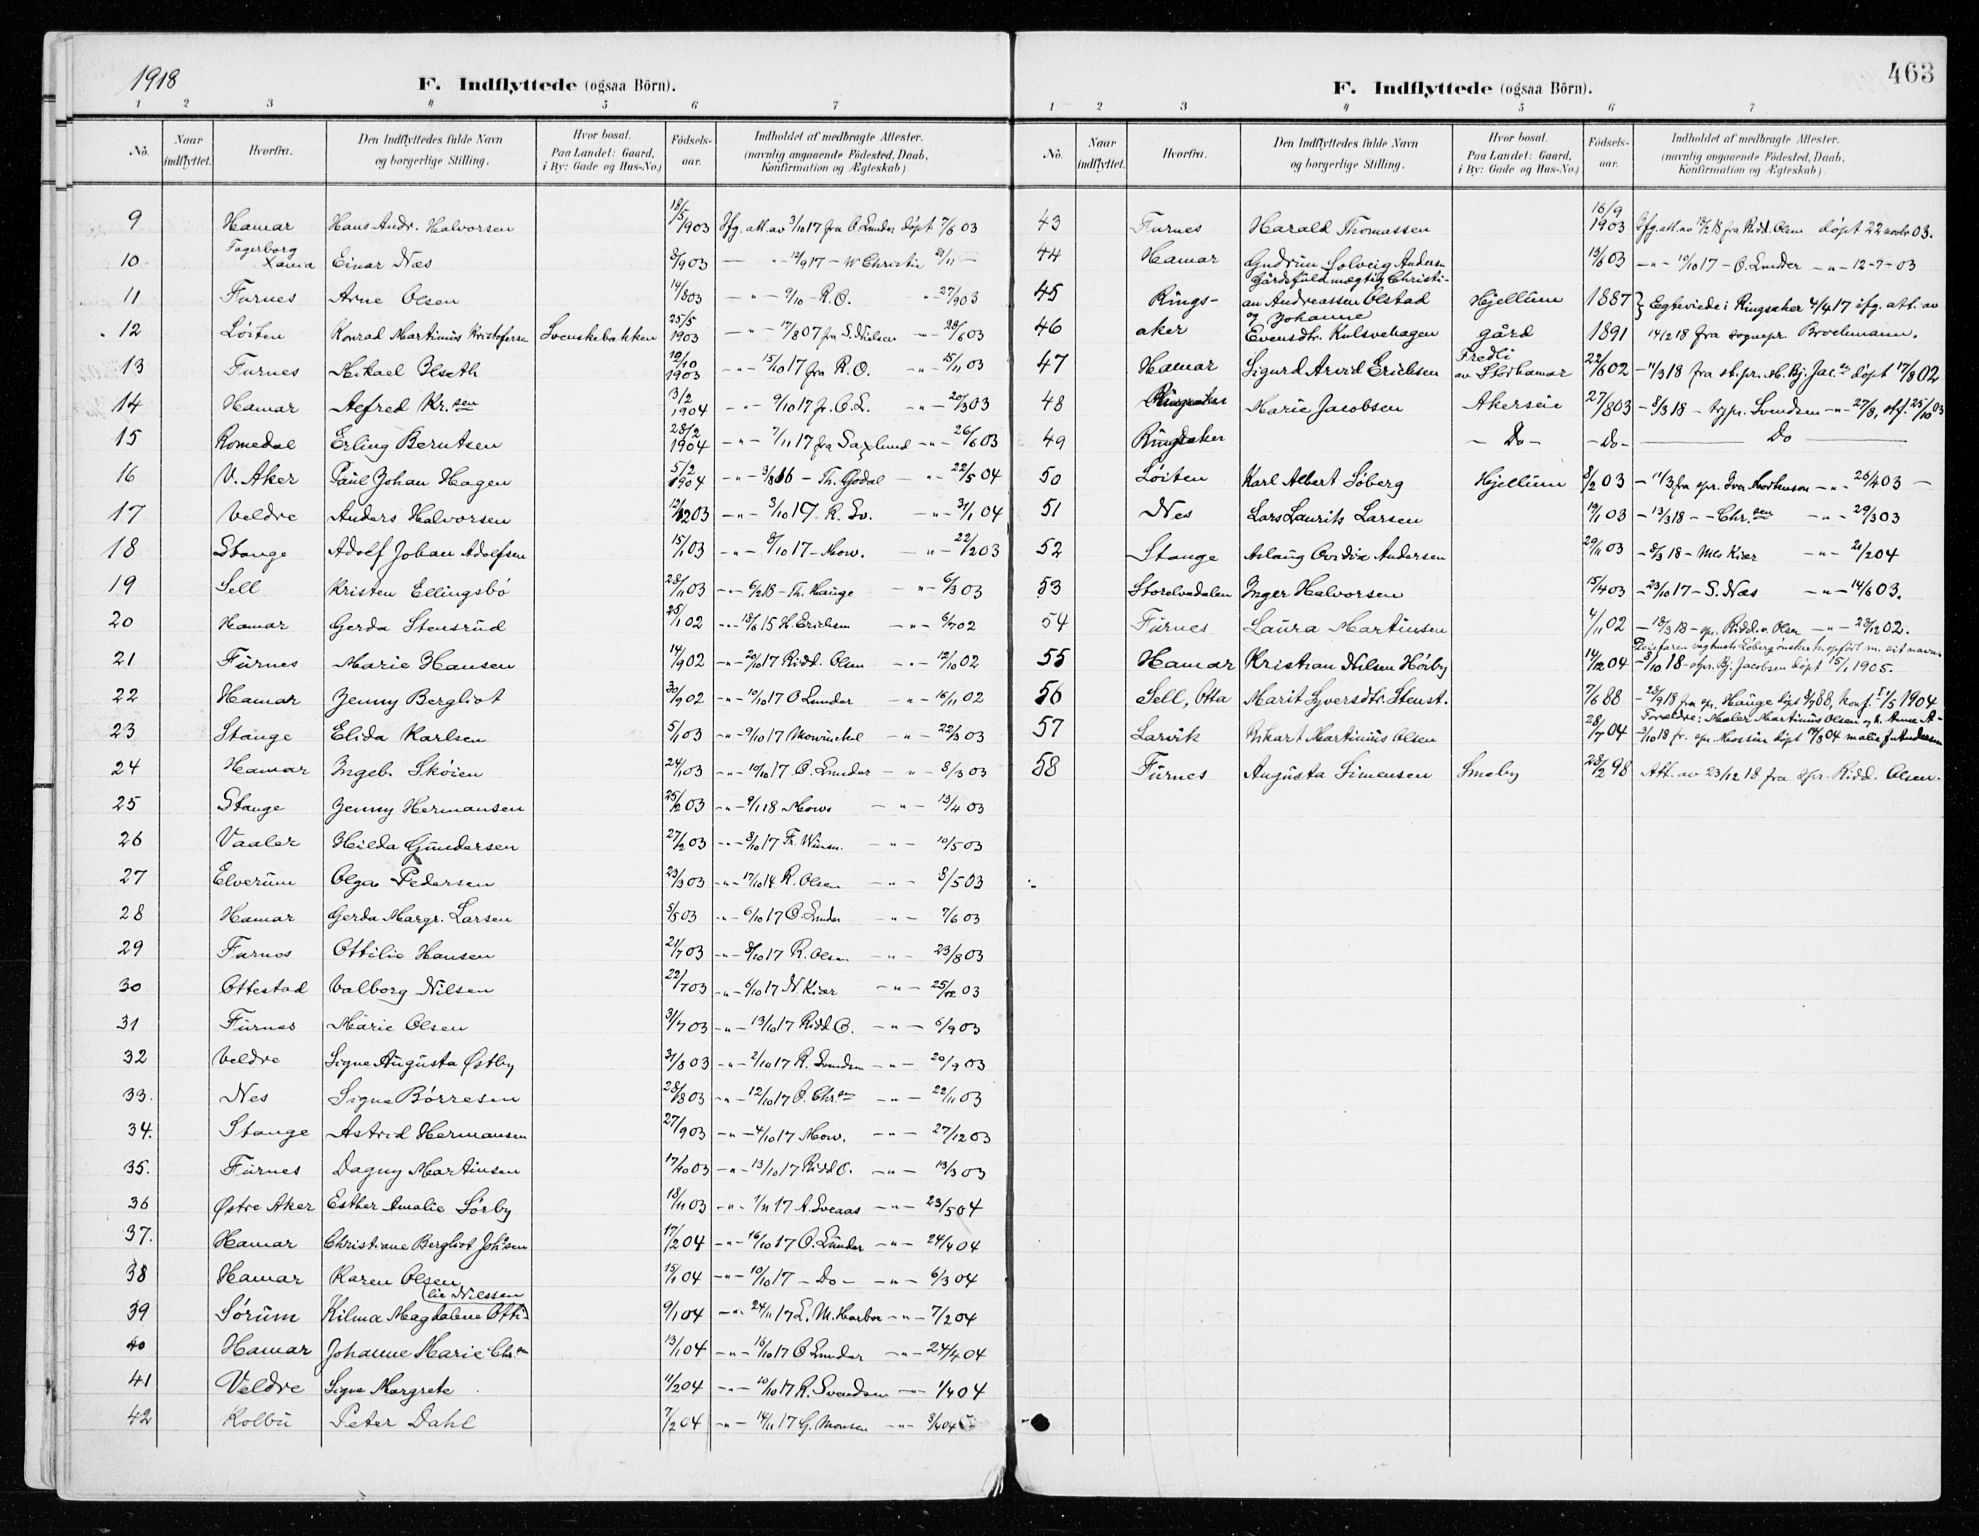 1918
F. Indflyttede (ogsaa Börn).
1 2 3 4 5 6 7
No. Naar indflyttet. Hvorfra. Den Indflyttedes fulde Navn og borgerlige Stilling. Hvor bosat. Paa Landet: Gaard, i By: Gade og Hus-No.) Födsels-aar. Indholdet af medbragte Attester. (navnlig angaaende Födested, Daab, Konfirmation og Ægteskab)
9 Hamar Hans Andr. Halvorsen 18/5 1903 Ifg. att. av 3/10 17 fra O. Lunder döpt 7/6 03
10 Fagerborg Xania Einar Næs 8/9 03 — " 12/9 17 — W Christie
11 Furnes Arne Olsen 14/8 03 — " — 9/10 — R.O. " 27/9 03
12 Löiten Konrad Martinius Kristofersen Svenskebakken 25/5 1903 — " — 17/8 07 fra S. Nielsen — " — 28/6 03
13 Furnes Mikael Olseth 10/10 1903 — " — 15/10 17 fra R.O. — " — 15/11 03
14 Hamar Alfred Kr.sen 3/2 1904 — " — 9/10 17 fr. O.L. — " — 20/3 03
15 Romedal Erling Berntsen 28/2 1904 — " — 7/11 17 fra Saxlund — " — 26/6 03
16 V. Aker Paul Johan Hagen 5/2 1904 — " — 3/8 16 — Th. Godal — " — 22/5 04
17 Veldre Anders Halvorsen 12/12 03 — " — 3/10 17 — R. Sv. — " — 31/1 04
18 Stange Adolf Johan Adolfsen 15/1 03 — " — 8/10 17 — Mow. — " — 22/2 03
19 Sell Kristen Ellingsbö 28/11 03 — " — 6/2 18 — Th. Hauge — " — 6/3 03
20 Hamar Gerda Stensrud 25/1 02 — " — 18/6 15 H. Erichsen — " — 6/7 02
21 Furnes Marie Hansen 14/9 02 — " — 20/10 17 Ridd. Olsen — " — 12/10 02
22 Hamar Jenny Bergliot 30/9 02 — " — 10/10 17 O Lunder — " — 16/11 02
23 Stange Elida Karlsen 5/1 03 — " — 9/10 17 Mowinckel — " — 22/3 03
24 Hamar Ingeb. Sköien 24/1 03 — " — 10/10 17 O. Lunder — " — 8/3 03
25 Stange Jenny Hermansen 25/2 03 — " — 9/1 18 Mows — " — 13/4 03
26 Vaaler Hilda Gundersen 27/2 03 — " — 8/10 17 — " — 10/5 03
27 Elverum Olga Pedersen 23/3 03 — " — 17/10 14 R. Olsen — " — 8/5 03
28 Hamar Gerda Margr. Larsen 5/5 03 — " — 6/10 17 O. Lunder — " — 7/6 03
29 Furnes Ottilie Hansen 21/7 03 — " — 8/10 17 R. Olsen — " — 23/8 03
30 Ottestad Valborg Nilsen 22/7 03 — " — 6/10 17 N. Kiær — " — 25/12 03
31 Furnes Marie Olsen 31/7 03 — " — 13/10 17 Ridd O. — " — 6/9 03
32 Veldre Signe Augusta Østby 31/8 03 — " — 2/10 17 R. Svendsen — " — 20/9 03
33. Nes Signe Börresen 28/8 03 — " — 12/10 17 O. Chr.sen — " — 22/11 03
34. Stange Astrid Hermansen 27/9 03 — " — 4/10 17 Mow. — " — 27/12 03
35. Furnes Dagny Martinsen 17/10 03 — " — 13/10 17 Ridd O. — " — 13/3 03
36 Østre Aker Esther Amalie Sörby 18/11 03 — " — 1/11 17 A. Sveaas — " — 23/5 04
37. Hamar Christiane Bergliot Joh.sen 17/2 04 — " — 16/10 17 O. Lunder — " — 24/4 04
38 Hamar Karen Olsen 15/1 04 — " — 10/10 17 — Do — — " — 6/3 04
lie Nilssen
39 Sörum Kilma Magdalene Otti- 9/1 04 — " — 24/11 17 L. M. Harbor — " — 7/2 04
40 Hamar Johanne Marie Chr.en 13/1 04 — " — 16/10 17 O Lunder — " — 24/4 04
41 Veldre Signe Margrete 11/2 04 — " — 20/10 17 R. Svendsen — " — 1/4 04
42 Kolbu Peter Dahl 7/2 04 — " — 14/11 17 G. Monsen — " — 3/4 04
463
F. Indflyttede (ogsaa Börn).
1 2 3 4 5 6 7
No. Naar indflyttet. Hvorfra. Den Indflyttedes fulde Navn og borgerlige Stilling. Hvor bosat. Paa Landet: Gaard, i By: Gade og Hus-No.) Födsels-aar. Indholdet af medbragte Attester. (navnlig angaaende Födested, Daab, Konfirmation og Ægteskab).
43 Furnes Harald Thomassen 16/9 1903 Ifg. att. av 18/2 18 fra Ridd. Olsen döpt 22 novbr 03.
44 Hamar Gudrun Solveig Andersen 13/6 03 — " — 10/10 17 — O. Lunder — " — 12-7-03
Gårdsfuldmægtig Christi-
45 Rings- an Andreassen Olstad Hjellum 1887 } Egteviede i Ringsaker 4/4 17 ifg. att. av
og Johanne
46 aker Evensdtr. Kulsvehagen gård 1891 14/2 18 fra sognepr. Brochmann.
47 Hamar Sigurd Arvid Erichsen Fredli av Storhamar 22/6 02 — 11/3 18 fra st. pr. M. Bj. Jac.en döpt 17/8 02
48 Ringsaker Marie Jacobsen Akerseie 27/8 03 — 8/3 18 — Svendsen — " — 27/8, stf. 25/10 03
49 Ringsaker — Do — — Do — — Do —
50 Löiten Karl Albert Söberg Hjellum 8/2 03 — 11/3 fra spr. Iver Mortenson — " — 26/4 03 —
51 Nes Lars Laurits Larsen 19/1 03 — 13/3 18 — Chr.sen — " — 29/3 03
52 Stange Aslaug Ovidia Andersen 29/11 03 — 8/3 18 — Kiær — " — 21/2 04
53 Storelvedalen Inger Halvorsen 15/4 03 — 23/10 17 — S. Næs — " — 14/6 03.
54 Furnes Laura Martinsen 4/11 02 — 18/3 18 — spr. Ridd. Olsen — " — 28/12 02.
Pleiefaren Löberg önsker h. opfört m. sit navn
55 Hamar Kristian Nilsen Hörby 14/12 04 — 8/10 18 — spr. Bj. Jacobsen döpt 15/1 1905.
56 Sell, Otta Marit Syversdtr. Stenst. 7/6 88 — 28/9 18 fra spr. Hauge döpt 8/7 88, konf. 1/5 1904
Foreldre: Maler Martinius Olsen og h. Anna A-
57 Larvik Rikart Martinius Olsen 28/7 04 — 3/10 18 fr. spr. döpt 17/8 04 f. Andersen
58 Furnes Augusta Simensen Smeby 28/2 98 Att. av 23/12 18 fra spr. Ridd. Olsen.